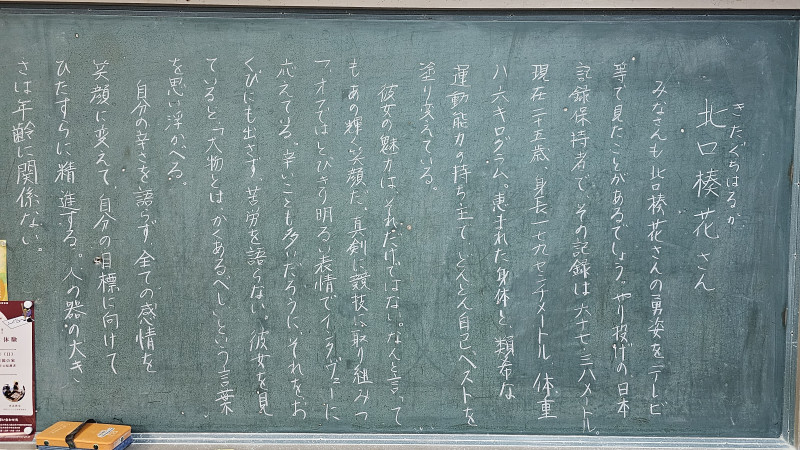 きたぐちはるか
北口榛花さん
みなさんも北口榛花さんの勇姿をテレビ
等で見たことがあるでしょう。やり投げの日本
記録保持者で、その記録は六十七.三八メートル。
現在二十五歳、身長一七九センチメートル、体重
八六キログラム。恵まれた身体と、類希な
運動能力の持ち主で、どんどん自己ベストを
塗り変えている。
彼女の魅力は、それだけではない。なんと言って
もあの輝く笑顔だ。真剣に競技に取り組みつ
つオフではとびきり明るい表情でインタヴューに
応えている。辛いことも多いだろうに、それをお
くびにも出さず、苦労を語らない。彼女を見
ていると、「大物とはかくあるべし」という言葉
を思い浮かべる。
自分の辛さを語らず、全ての感情を
笑顔に変えて、自分の目標に向けて
ひたすらに精進する。人の器の大き
さは年齢に関係ない。
体験